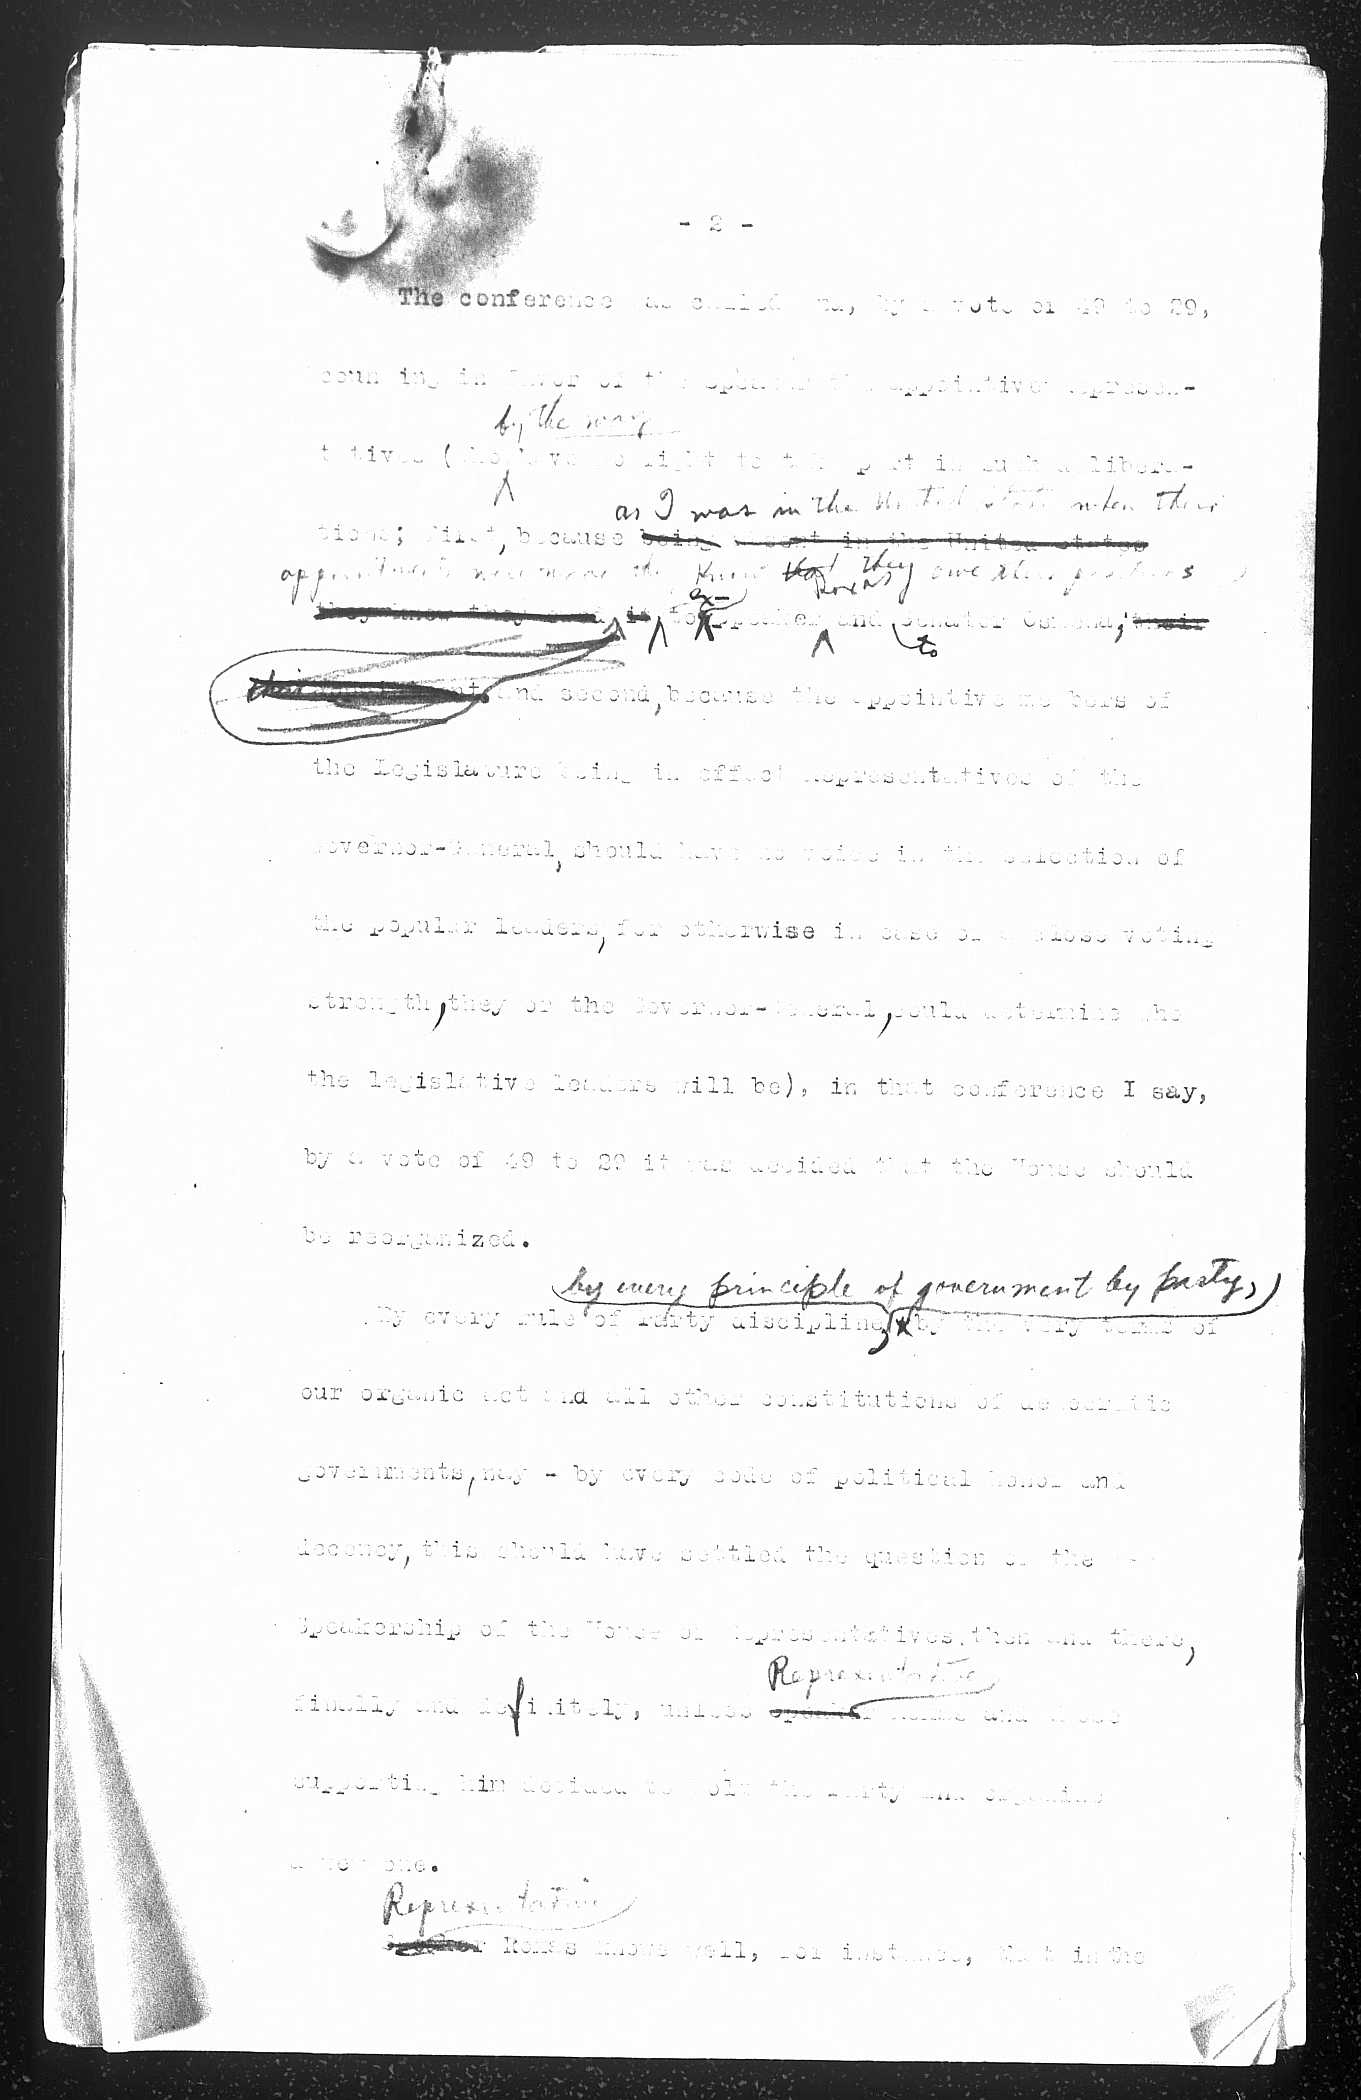 - 2 -
The conference as called and, by a vote of 49 to 29,
counting in favor of the speaker the appointive represen-
by the way
tatives (who have no right to take part in such a libera-
as I was in the United States when their
tions; first, because being absent in the United States
appointments were made they knew that they owe their positions
they know they owed it to ex-speaker Roxas and to Senator Osmena, their
their appointment, and second, because the appointive members of
the Legislature being in effect Representatives of the
Governor-General, should have no voice in the selection of
the popular leaders, for otherwise in case of a close voting
strength, they or the Governor-General, could determine who
the legislative leaders will be), in that conference I say,
by a vote of 49 to 29 it was decided that the House should
be reorganized.
by every principle of government by party,
By every rule of Party discipline, by the very terms of
our organic act and all other constitutions of democratic
governments, nay - by every code of political honor and
decency, this should have settled the question of the
Speakership of the House of Representatives, then and there,
Representative
finally and definitely, unless speaker Roxas and those
supporting him decided to bolt the Party and organize
a new one.
Representative
Speaker Roxas knows well, for instance, that in the